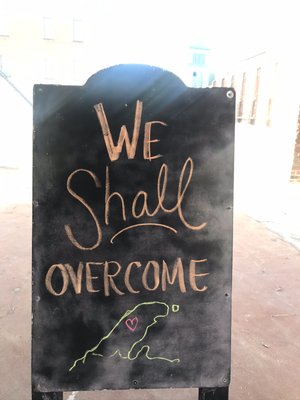 WE
Shall
OVERCOME